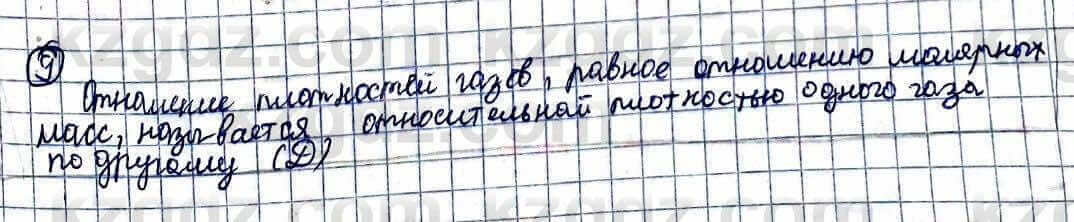 9
Отношение плотностей газов, равное отношению молярных
масс, называется относительной плотностью одного газа
по другому (D)